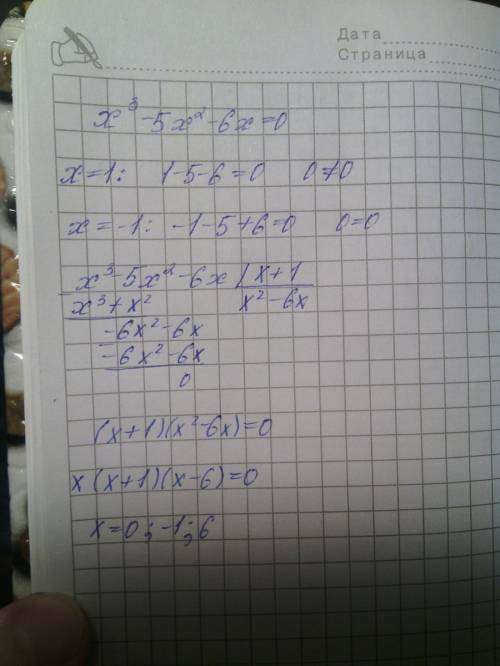 Дата
Страница
x³-5x²-6x=0
x=1: 1-5-6=0 0≠0
x=-1: -1-5+6=0 0=0
x³-5x²-6x | x+1
x³+x² x²-6x
-6x²-6x
-6x²-6x
0
(x+1)(x²-6x)=0
x(x+1)(x-6)=0
x=0;-1;6